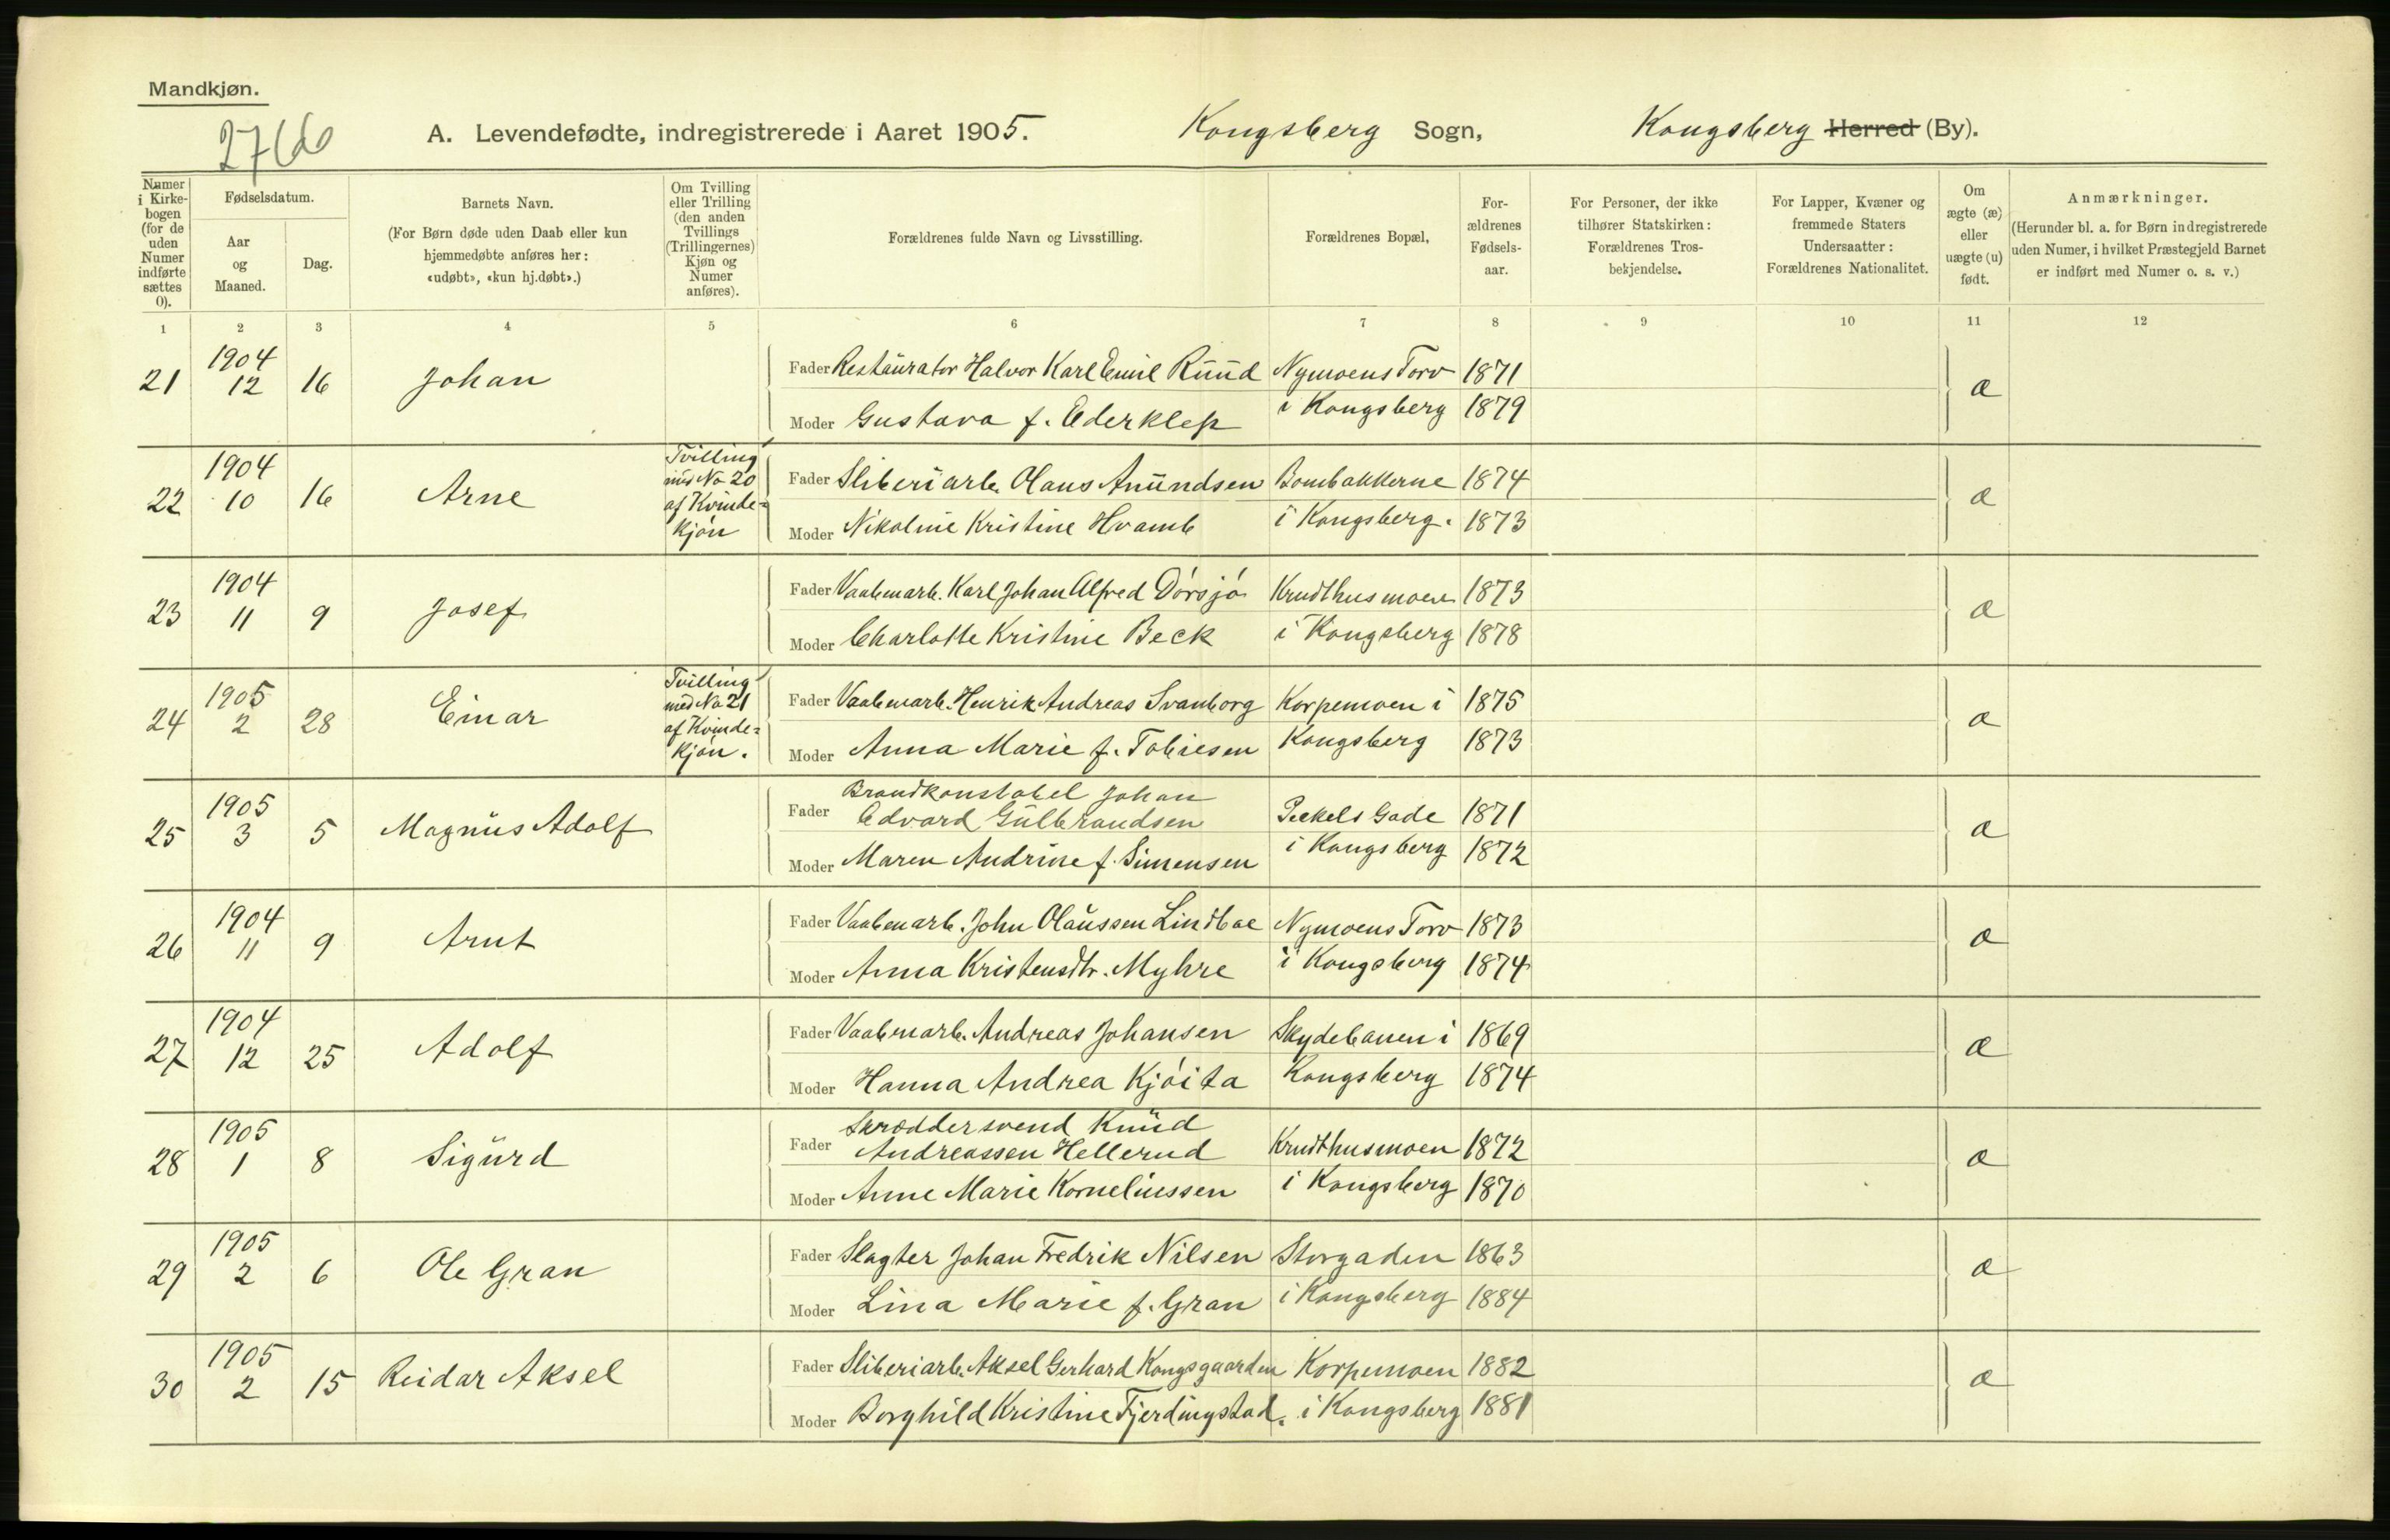 Mandkjøn.
A. Levendefødte, indregistrerede i Aaret 1905. Kongsberg Sogn, Kongsberg Herred (By).
Numer i Kirkebogen (for de uden Numer indførte sættes 0).
Fødselsdatum.
Aar og Maaned.
Dag.
Barnets Navn.
(For Børn døde uden Daab eller kun hjemmedøbte anføres her: «udøbt», «kun hj.døbt».)
Om Tvilling eller Trilling (den anden Tvillings (Trillingernes) Kjøn og Numer anføres).
Forældrenes fulde Navn og Livsstilling.
Forældrenes Bopæl,
Forældrenes Fødselsaar.
For Personer, der ikke tilhører Statskirken: Forældrenes Trosbekjendelse.
For Lapper, Kvæner og fremmede Staters Undersaatter: Forældrenes Nationalitet.
Om ægte (æ) eller uægte (u) født.
Anmærkninger.
(Herunder bl. a. for Børn indregistrerede uden Numer, i hvilket Præstegjeld Barnet er indført med Numer o. s. v.)
1 2 3 4 5 6 7 8 9 10 11 12
21 1904 12 16 Johan Fader Restaurator Halvor Karl Emil Ruud Nymoens Torv 1871 æ
Moder Gustava f. Ederklep i Kongsberg 1879
22 1904 10 16 Arne Tvilling med No 20 af Kvinde=kjøn Fader Sliberiarb. Olaus Amundsen Bombakkerne 1874 æ
Moder Nikoline Kristine Hvamb i Kongsberg. 1873
23 1904 11 9 Josef Fader Vaabenarb. Karl Johan Alfred Dørsjø Krudthusmoen 1873 æ
Moder Charlotte Kristine Beck i Kongsberg 1878
24 1905 2 28 Einar Tvilling med No 21 af Kvinde=kjøn. Fader Vaabenarb. Henrik Andreas Svanborg Korpemoen i 1875 æ
Moder Anna Marie f. Tobiesen Kongsberg 1873
25 1905 3 5 Magnus Adolf Fader Brandkonstabel Johan
Edvard Gulbrandsen Peckels Gade 1871 æ
Moder Maren Andrine f. Simensen i Kongsberg 1872
26 1904 11 9 Arnt Fader Vaabenarb. John Olaussen Lindboe Nymoens Torv 1873 æ
Moder Anna Kristensdtr. Myhre i Kongsberg 1874
27 1904 12 25 Adolf Fader Vaabenarb. Andreas Johansen Skydebanen i 1869 æ
Moder Hanna Andrea Kjøita Kongsberg 1874
28 1905 1 8 Sigurd Fader Skræddersvend Knud
Andreassen Hellerud Krudthusmoen 1872 æ
Moder Anne Marie Korneliussen i Kongsberg 1870
29 1905 2 6 Ole Gran Fader Slagter Johan Fredrik Nilsen Storgaden 1863 æ
Moder Lina Marie f. Gran i Kongsberg 1884
30 1905 2 15 Reidar Aksel Fader Sliberiarb. Aksel Gerhard Kongsgaarden Korpemoen 1882 æ
Moder Borghild Kristine Fjerdingstad. i Kongsberg 1881